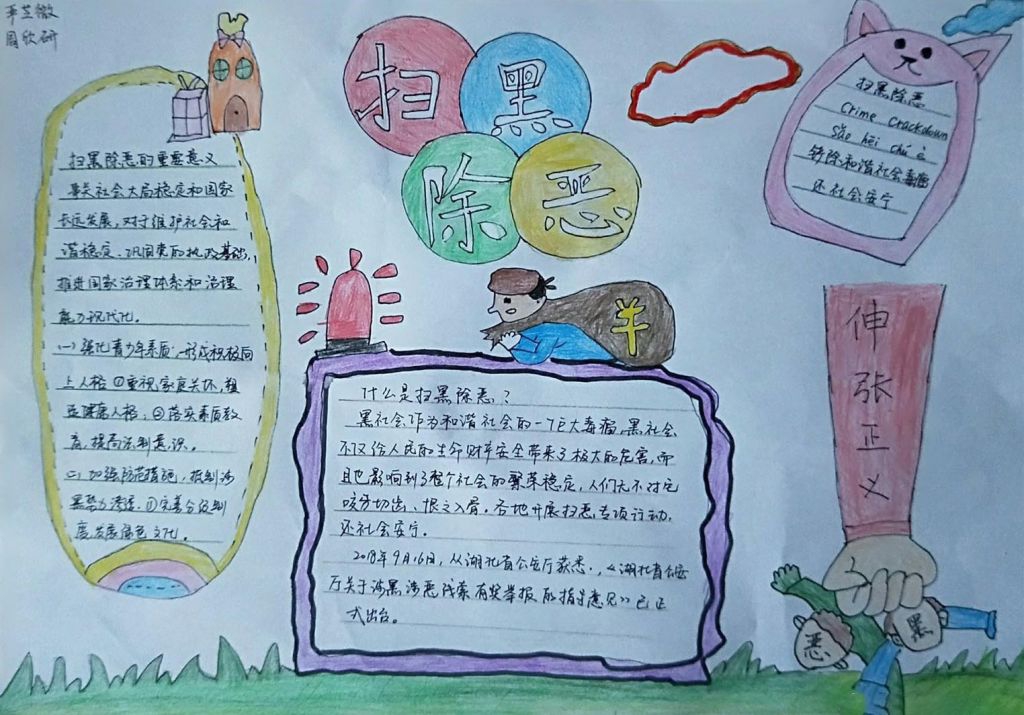 周欣研
扫黑
除恶
扫黑除恶的重要意义
事关社会大局稳定和国家
长远发展,对于维护社会和
谐稳定、巩固党的执政基础,
推进国家治理体系和治理
能力现代化。
(一)强化青少年素质:形成积极向
上人格①重视家庭关怀,塑
造健康人格;②落实素质教
育,提高法制意识。
(二)加强防范措施,抵制涉
黑势力渗透。①完善分级制
度,发展绿色文化。
羊
什么是扫黑除恶?
黑社会作为和谐社会的一个巨大毒瘤,黑社会
不仅给人民的生命财产安全带来了极大的危害,而
且也影响到了整个社会的繁荣稳定,人们无不对它
咬牙切齿、恨之入骨。各地开展扫恶专项行动,
还社会安宁。
2018年9月16日,从湖北省公安厅获悉,《湖北省公安
厅关于涉黑涉恶线索有奖举报的指导意见》已正
式出台。
扫黑除恶
Crime Crackdown
sǎo hēi chú è
铲除和谐社会毒瘤
还社会安宁
伸
张
正
义
恶
黑